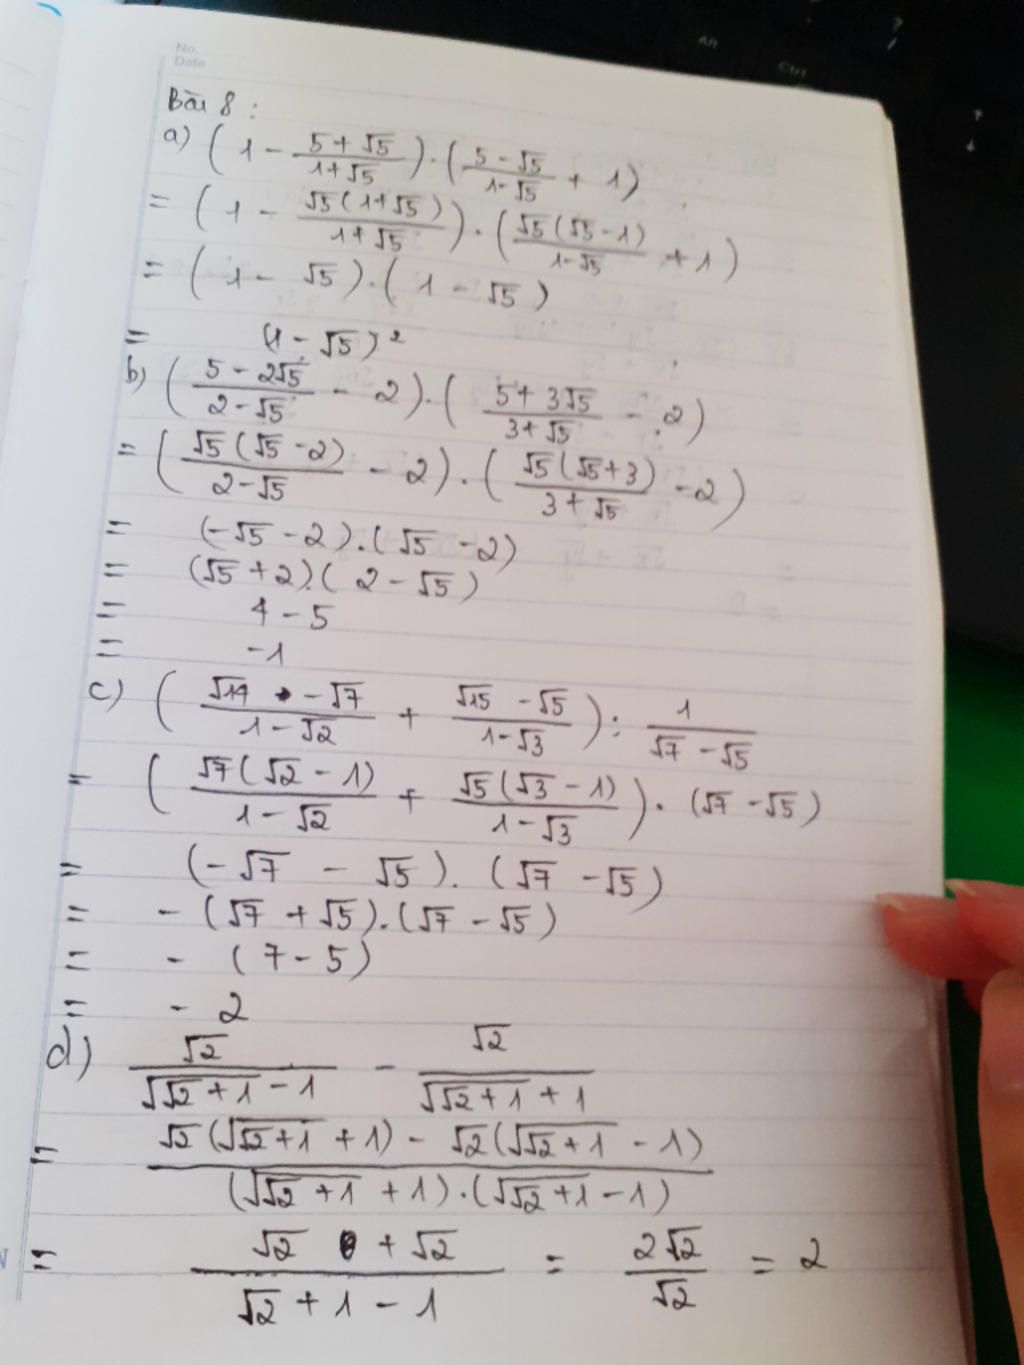 No.
Date
Alt
Ctrl
Bài 8 :
a) (1 - (5 + √5)/(1 + √5)) . ((5 - √5)/(1 - √5) + 1)
= (1 - √5(1 + √5)/(1 + √5)) . (√5(√5 - 1)/(1 - √5) + 1)
= (1 - √5) . (1 - √5)
= (1 - √5)²
b) ((5 - 2√5)/(2 - √5) - 2) . ((5 + 3√5)/(3 + √5) - 2)
= (√5(√5 - 2)/(2 - √5) - 2) . (√5(√5 + 3)/(3 + √5) - 2)
= (-√5 - 2) . (√5 - 2)
= (√5 + 2) . (2 - √5)
= 4 - 5
= -1
c) ((√14 - √7)/(1 - √2) + (√15 - √5)/(1 - √3)) : 1/(√7 - √5)
= (√7(√2 - 1)/(1 - √2) + √5(√3 - 1)/(1 - √3)) . (√7 - √5)
= (-√7 - √5) . (√7 - √5)
= - (√7 + √5) . (√7 - √5)
= - (7 - 5)
= - 2
d) √2/(√(√2 + 1) - 1) - √2/(√(√2 + 1) + 1)
= (√2(√(√2 + 1) + 1) - √2(√(√2 + 1) - 1))/((√(√2 + 1) + 1) . (√(√2 + 1) - 1))
= (√2 + √2)/(√2 + 1 - 1) = 2√2/√2 = 2